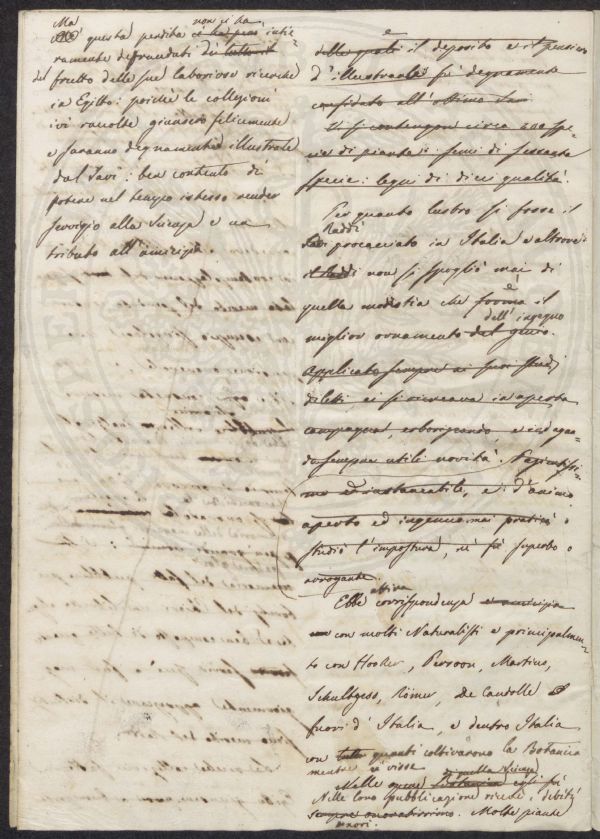 Ma non ci ha
questa perdita ci ha pero intie=
ramente defraudati di tutto il
del frutto delle sue laboriose ricerche
in Egitto: poichè le collezioni
ivi raccolte giunsero felicemente
e saranno degnamente illustrate
dal Savi: ben contento di
potere nel tempo istesso render
servigio alla Scienza e un
tributo all'amicizia.
e
delle quali il deposito e il pensiero
d'illustrarle fù degnamente
confidato all'ottimo Savi
Vi si contengon circa 400 spe=
cie di piante: semi di sessanta
specie: legni di dieci qualità.
Per quanto lustro si fosse il
Raddi
procacciato in Italia e altrove:
il Raddi non si spogliò mai di
quella modestia che forma è il
dell'ingegno
miglior ornamento del genio.
Applicato sempre ai suoi studj
diletti ei si ricreava in aperta
campagna, erborizzando, e indagan=
do sempre utili novità.
mo ed instancabile, e d'animo
aperto ed ingenuo mai praticò o
studiò l'impostura, nè fù superbo o
arrogante.
attiva
Ebbe corrispondenza e amicizia
con molti Naturalisti e principalmen=
te con Hooker, Persoon, Martius,
Schultgess, Römer, De Candolle
fuori d'Italia, e dentro Italia
con tutti quanti coltivarono la Botanica
mentre ei visse
di quella Scienza
Nelle opere Botanica egli fù
Nelle loro pubblicazioni ricevè i debiti
sempre onoratissimo. Molte piante
onori.